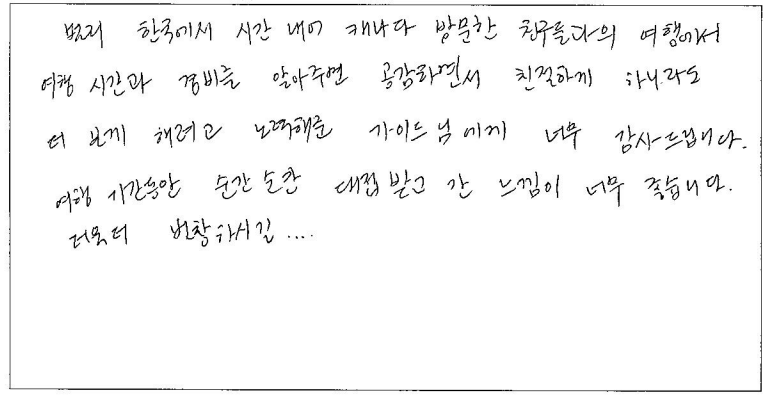 멀리 한국에서 시간 내어 캐나다 방문한 친구들과의 여행에서
여행 시간과 경비를 알아주면 공감하면서 친절하게 하나라도
더 보게 해려고 노력해준 가이드님에게 너무 감사드립니다.
여행 기간동안 순간순간 대접 받고 간 느낌이 너무 좋습니다.
더욱더 번창하시길 ....